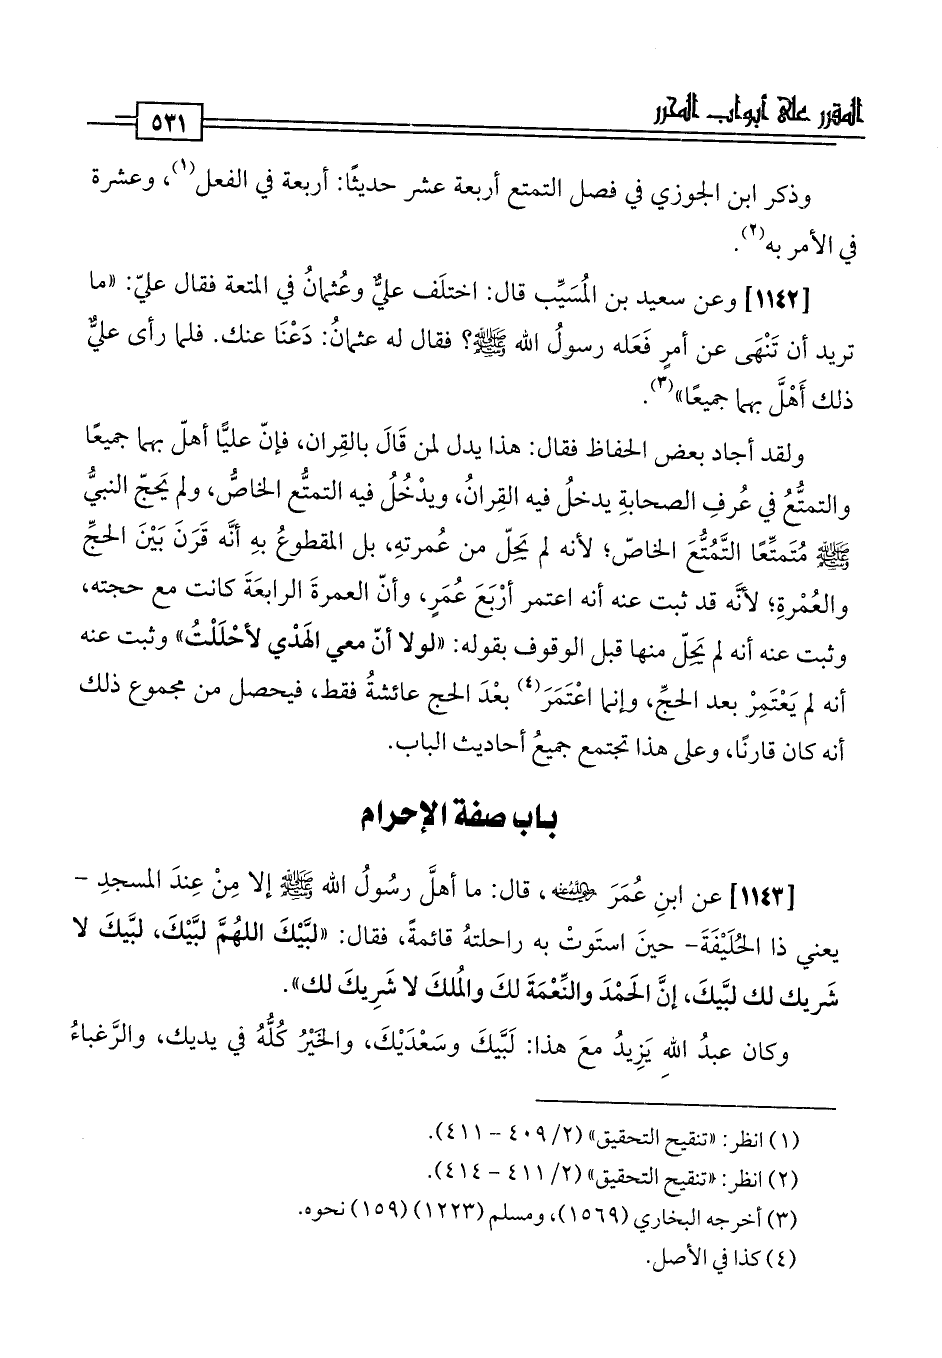 المقرر على أبواب المحرر
٥٣١
وذكر ابن الجوزي في فصل التمتع أربعة عشر حديثًا: أربعة في الفعل(١)، وعشرة
في الأمر به(٢).
[١١٤٢] وعن سعيد بن المُسَيِّب قال: اختلَف عليٌّ وعُثمانُ في المتعة فقال عليّ: «ما
تريد أن تَنْهَى عن أمرٍ فَعَله رسولُ الله ﷺ؟ فقال له عثمانُ: دَعْنَا عنك. فلما رأى عليٌّ
ذلك أَهْلَّ بهما جميعًا»(٣).
ولقد أجاد بعض الحفاظ فقال: هذا يدل لمن قَالَ بالقِران، فإنّ عليًّا أهلّ بهما جميعًا
والتمتُّعُ في عُرفِ الصحابةِ يدخلُ فيه القِرانُ، ويدْخُلُ فيه التمتُّع الخاصُّ، ولم يَحجّ النبيُّ
ﷺ مُتَمتِّعًا التَّمُتُّعَ الخاصّ؛ لأنه لم يَحِلّ من عُمرتهِ، بل المقطوعُ بهِ أنَّه قَرَنَ بَيْنَ الحجِّ
والعُمْرةِ؛ لأنَّه قد ثبت عنه أنه اعتمر أرْبَعَ عُمَرٍ، وأنّ العمرةَ الرابعَةَ كانت مع حجته،
وثبت عنه أنه لم يَحِلّ منها قبل الوقوف بقوله: «لولا أنّ معي الهَدْي لأحْلَلْتُ» وثبت عنه
أنه لم يَعْتَمِرْ بعد الحجِّ، وإنما اعْتَمَرَ(٤) بعْدَ الحج عائشةُ فقط، فيحصل من مجموع ذلك
أنه كان قارنًا، وعلى هذا تجتمع جميعُ أحاديث الباب.
باب صفة الإحرام
[١١٤٣] عن ابنِ عُمَرَ رضي الله عنه، قال: ما أهلَّ رسُولُ الله ﷺ إلا مِنْ عِندَ المسجدِ -
يعني ذا الحُلَيْفَةَ- حينَ استَوتْ به راحلتهُ قائمةً، فقال: «لبَّيْكَ اللهُمَّ لبَّيْكَ، لبَّيكَ لا
شَريكَ لك لبَّيكَ، إنَّ الحَمْدَ والنِّعْمَةَ لكَ والمُلكَ لا شَريكَ لك».
وكان عبدُ اللهِ يَزِيدُ معَ هذا: لَبَّيكَ وسَعْدَيْكَ، والخَيْرُ كُلُّهُ في يديك، والرَّغباءُ
(١) انظر: «تنقيح التحقيق» (٢/ ٤٠٩ - ٤١١).
(٢) انظر: «تنقيح التحقيق» (٢/ ٤١١ - ٤١٤).
(٣) أخرجه البخاري (١٥٦٩)، ومسلم (١٢٢٣) (١٥٩) نحوه.
(٤) كذا في الأصل.